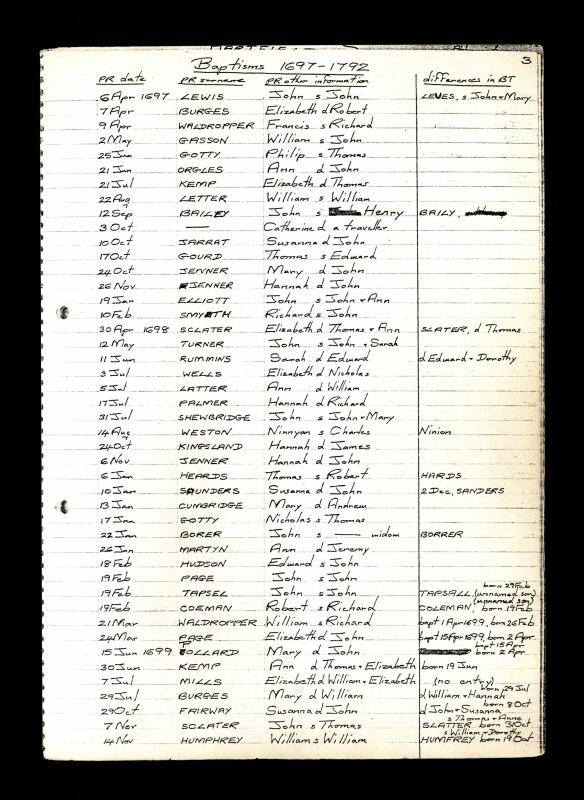 3
Baptisms 1697-1792
PR date PR surname PR other information differences in BT
6 Apr 1697 LEWIS John s John LEVES, s John + Mary
7 Apr BURGES Elizabeth d Robert
9 Apr WALDROPPER Francis s Richard
2 May GASSON William s John
25 Jun GOTTY Philip s Thomas
21 Jun ORGLES Ann d John
21 Jul KEMP Elizabeth d Thomas
22 Aug LETTER William s William
12 Sep BAILEY John s Henry BAILY,
3 Oct — Catherine d a traveller
10 Oct JARRAT Susanna d John
17 Oct GOURD Thomas s Edward
24 Oct JENNER Mary d John
26 Nov JENNER Hannah d John
19 Jan ELLIOTT John s John + Ann
10 Feb SMYTH Richard s John
30 Apr 1698 SCLATER Elizabeth d Thomas + Ann SLATER, d Thomas
12 May TURNER John s John + Sarah
11 Jun RUMMINS Sarah d Edward d Edward + Dorothy
3 Jul WELLS Elizabeth d Nicholas
5 Jul LATTER Ann d William
17 Jul PALMER Hannah d Richard
31 Jul SHEWBRIDGE John s John + Mary
14 Aug WESTON Ninnyan s Charles Ninion
24 Oct KINGSLAND Hannah d James
6 Nov JENNER Hannah d John
6 Jan HEARDS Thomas s Robert HARDS
10 Jan SAUNDERS Susanna d John 2 Dec, SANDERS
13 Jan CUMBRIDGE Mary d Andrew
17 Jan GOTTY Nicholas s Thomas
22 Jan BORER John s — widow BORRER
26 Jan MARTYN Ann d Jeremy
18 Feb HUDSON Edward s John
19 Feb PAGE John s John born 29 Feb (unnamed son)
19 Feb TAPSEL John s John TAPSALL (unnamed son)
19 Feb COEMAN Robert s Richard COLEMAN, born 19 Feb
21 Mar WALDROPPER William s Richard bapt 1 Apr 1699, born 26 Feb
24 Mar PAGE Elizabeth d John bapt 15 Apr 1699, born 2 Apr
15 Jun 1699 POLLARD Mary d John bapt 15 Apr born 2 Apr
30 Jun KEMP Ann d Thomas + Elizabeth born 19 Jun
7 Jul MILLS Elizabeth d William + Elizabeth (no entry)
29 Jul BURGES Mary d William born 29 Jul d William + Hannah
29 Oct FAIRWAY Susanna d John born 8 Oct d John + Susanna
7 Nov SCLATER John s Thomas s Thomas + Anne SLATTER born 31 Oct
14 Nov HUMPHREY William s William s William + Dorothy HUMFREY born 19 Oct